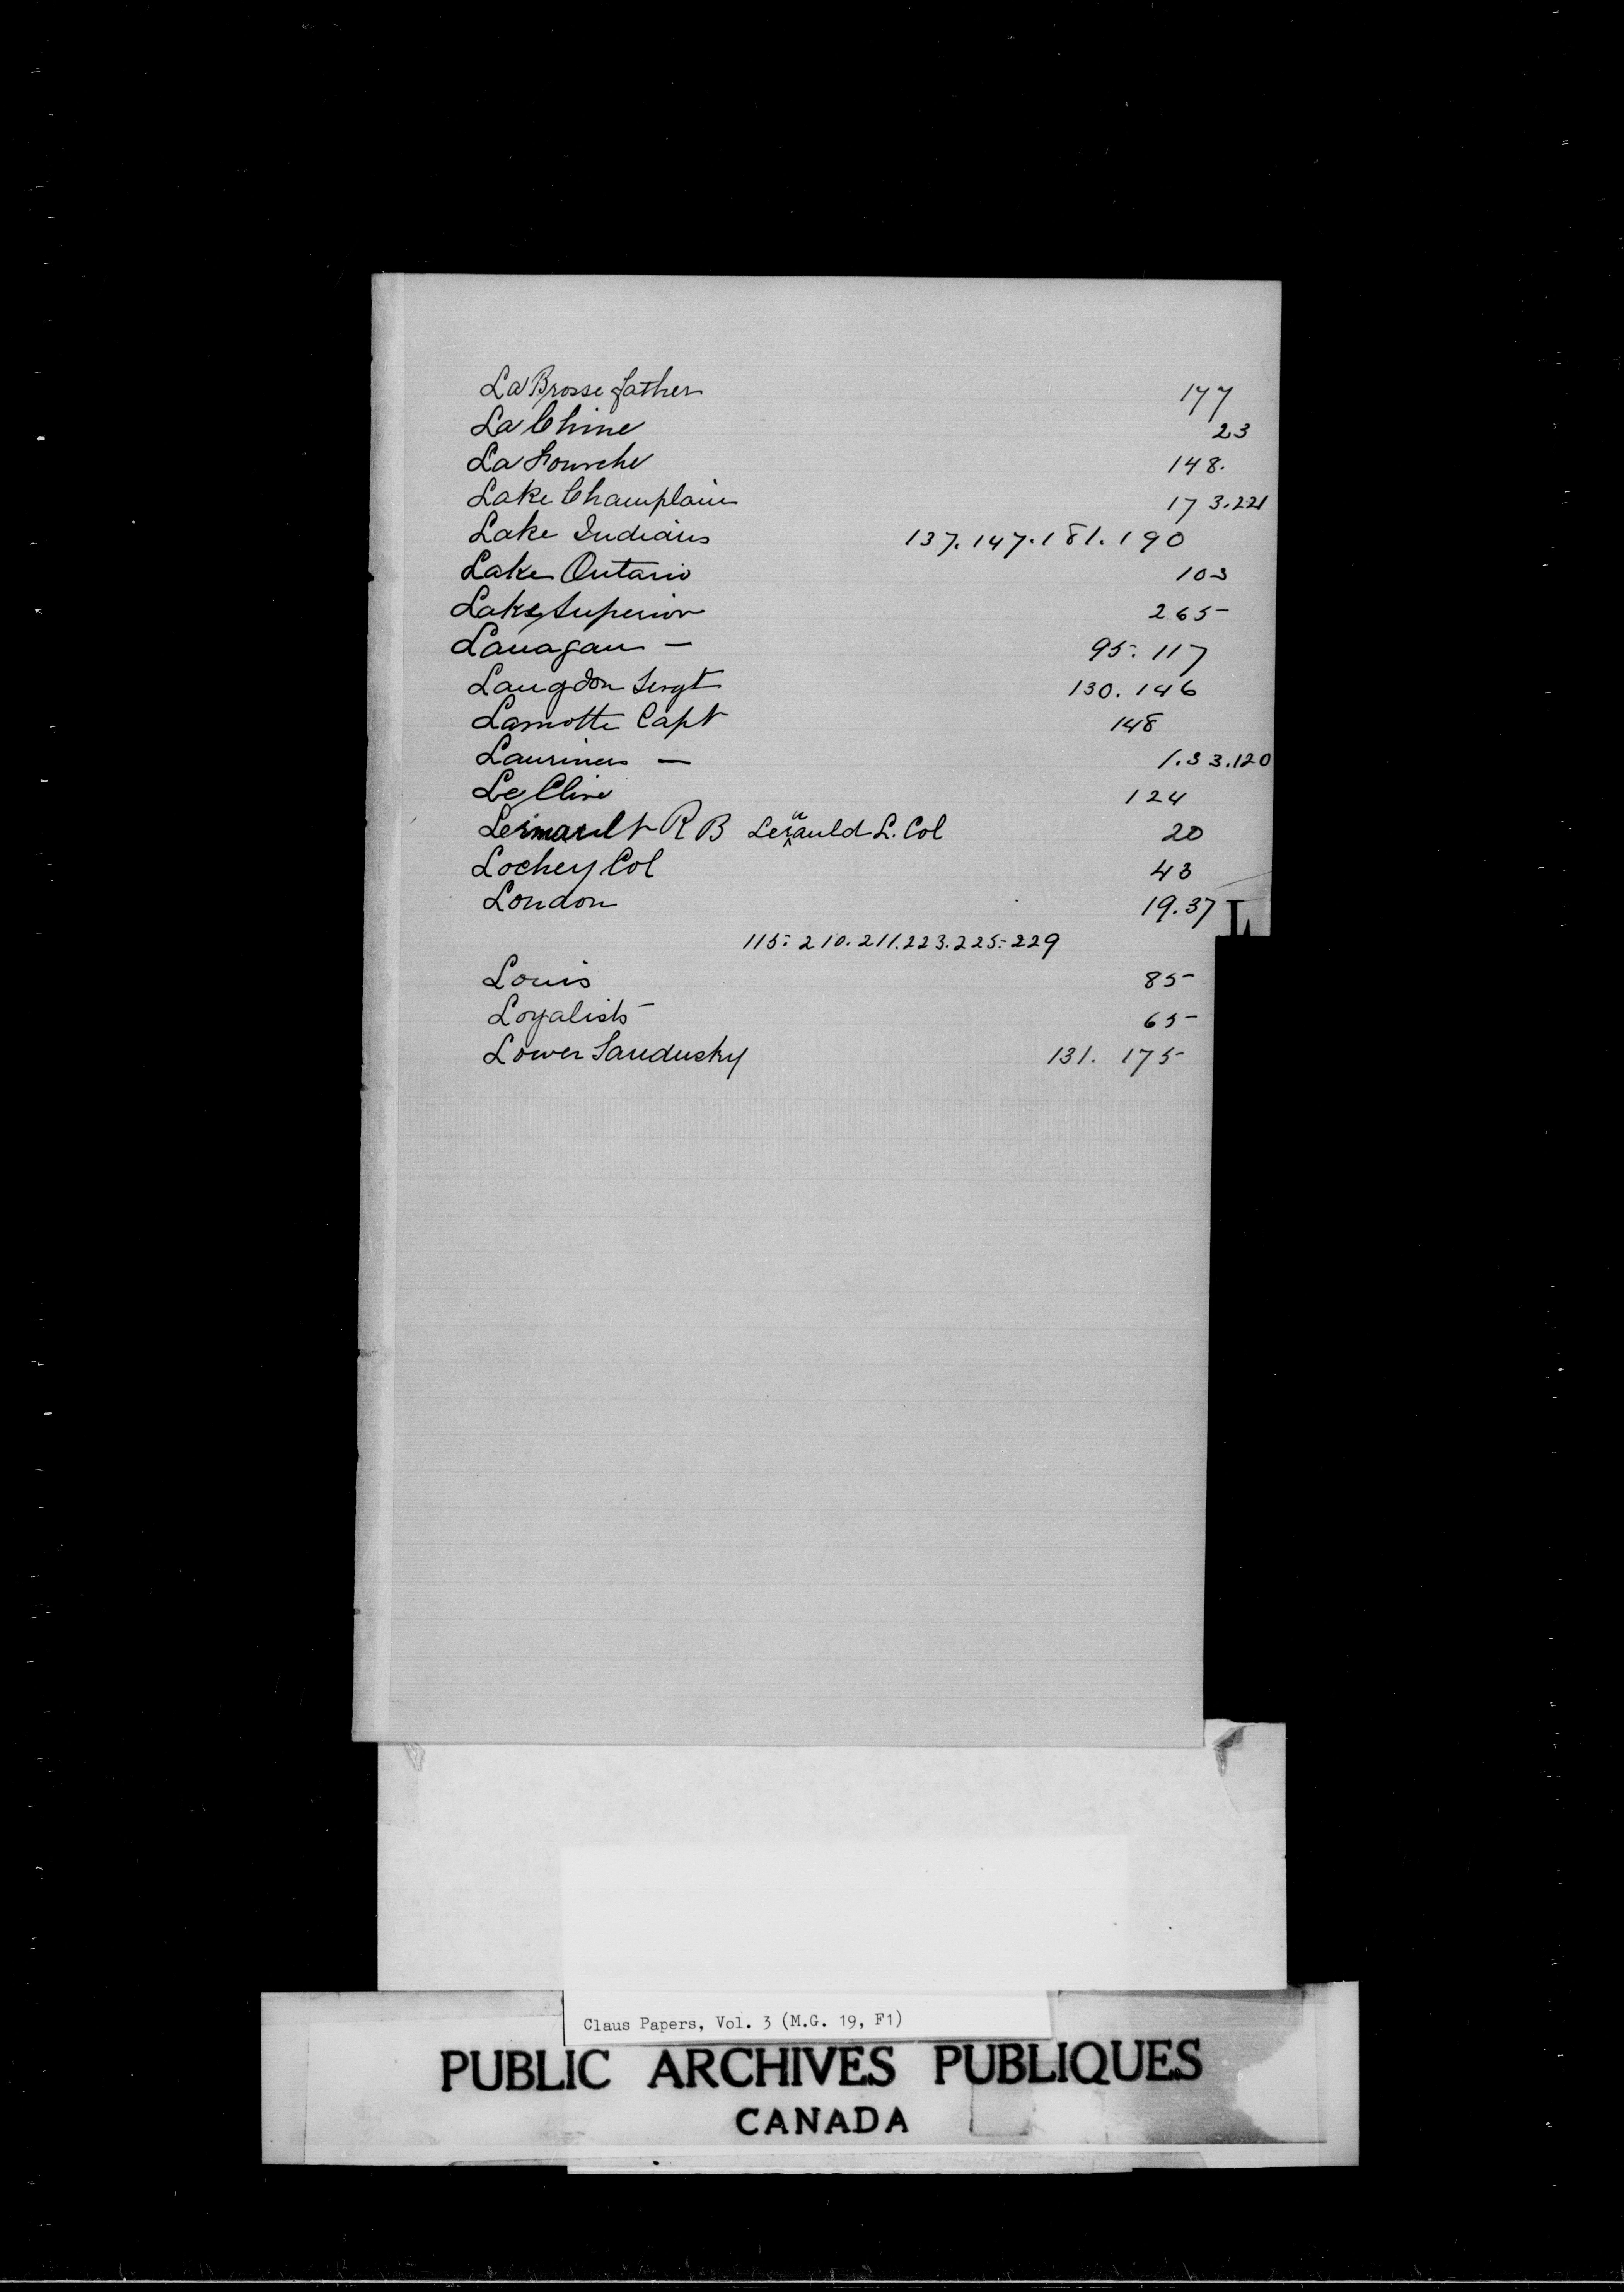 La Brosse father 177
La Chine 23
La Fourche 148.
Lake Champlain 173.221
Lake Indians 137.147.181.190
Lake Ontario 103
Lake Superior 265
Lanagan — 95. 117
Langdon Sergt 130. 146
Lamotte Capt 148
— 1.33.120
Le Cline 124
R B L. Col 20
Lochey Col 43
London 19.37
L
115. 210. 211. 223. 225. 229
Louis 85
Loyalists 65
Lower Sandusky 131. 175
Claus Papers, Vol. 3 (M.G. 19, F1)
PUBLIC ARCHIVES PUBLIQUES
CANADA